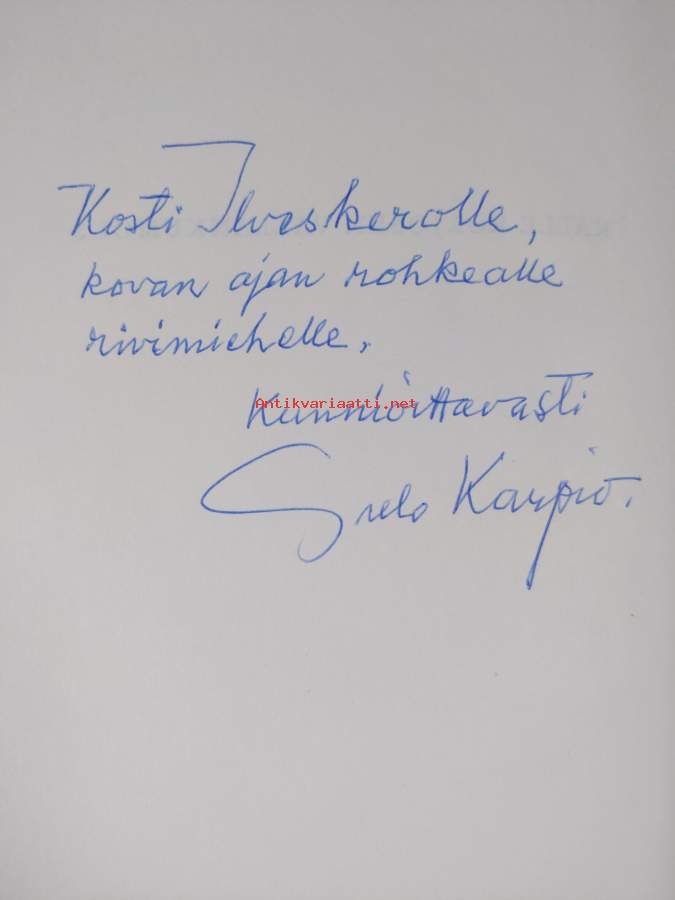 Kosti Ilveskerolle,
kovan ajan rohkealle
rivimiehelle.
Kunnioittavasti
Antikvariaatti.net
Karpio.